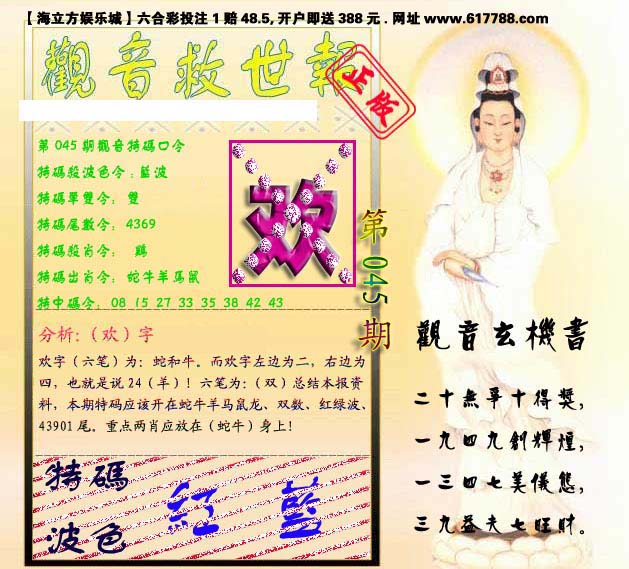 【海立方娱乐城】六合彩投注1赔48.5,开户即送388元.网址www.617788.com
觀音救世報
正版
第045期觀音特碼口令
特碼殺波色令:藍波
特碼單雙令: 雙
特碼尾數令: 4369
特碼殺肖令: 鷄
特碼出肖令: 蛇牛羊马鼠
特中碼令: 08 15 27 33 35 38 42 43
欢
第045期
分析:（欢）字
欢字（六笔）为：蛇和牛。而欢字左边为二，右边为
四，也就是说24（羊）！六笔为：（双）总结本报资
料，本期特码应该开在蛇牛羊马鼠龙、双数、红绿波、
43901尾。重点两肖应放在（蛇牛）身上！
特碼
波色
紅 藍
觀音玄機書
二十無爭十得獎，
一九四九創輝煌，
一三四七美儀態，
三九益夫七旺財。